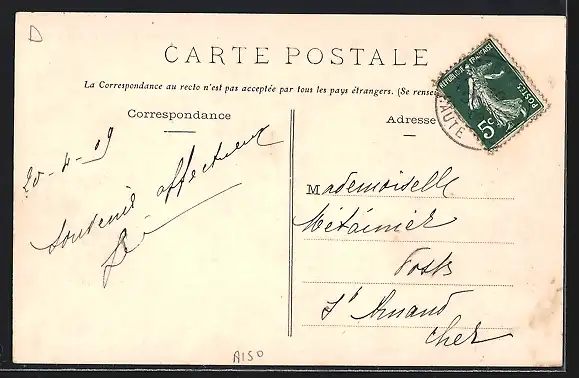 D
CARTE POSTALE
La Correspondance au recto n'est pas acceptée par tous les pays étrangers. (Se rense
Correspondance
Adresse
RÉPUBLIQUE FRANÇAISE
POSTES
5c
HAUTE
20-4-09
Souvenir affectueux
Mademoiselle
Métainier
Postes
St Amand
Cher
A150